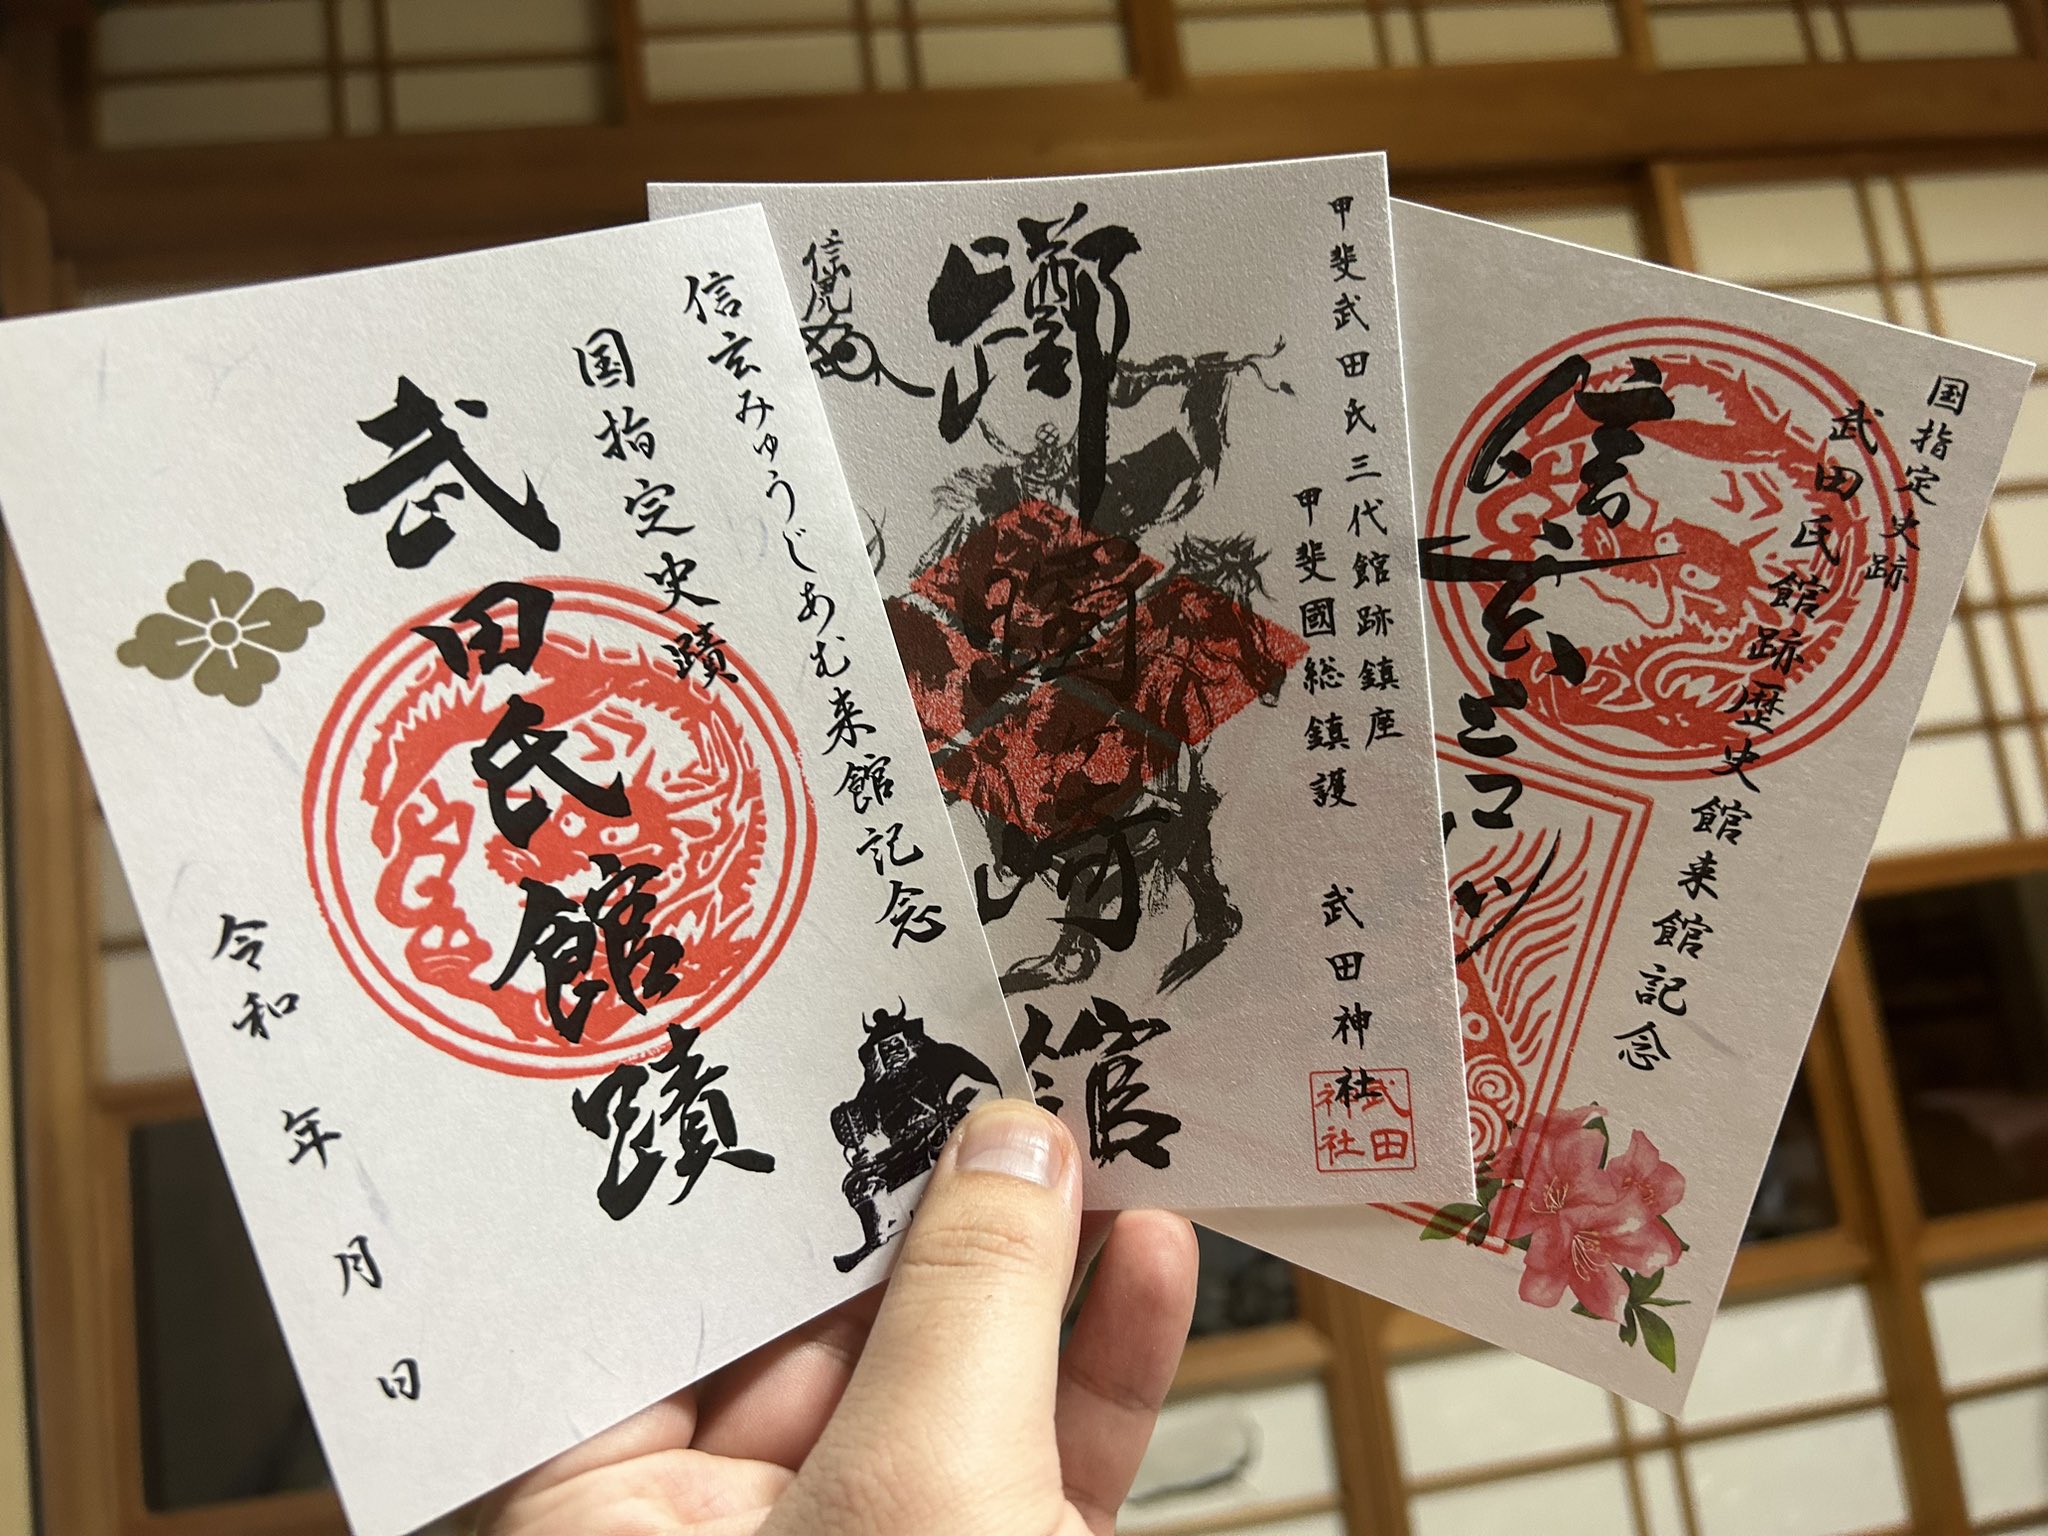 信玄みゅうじあむ来館記念
国指定史蹟
武田氏館蹟
令和 年 月 日
甲斐武田氏三代館跡鎮座
甲斐國総鎮護 武田神社
武田神社
崎館
信虎
国指定史跡
武田氏館跡歴史館来館記念
信玄ミュ